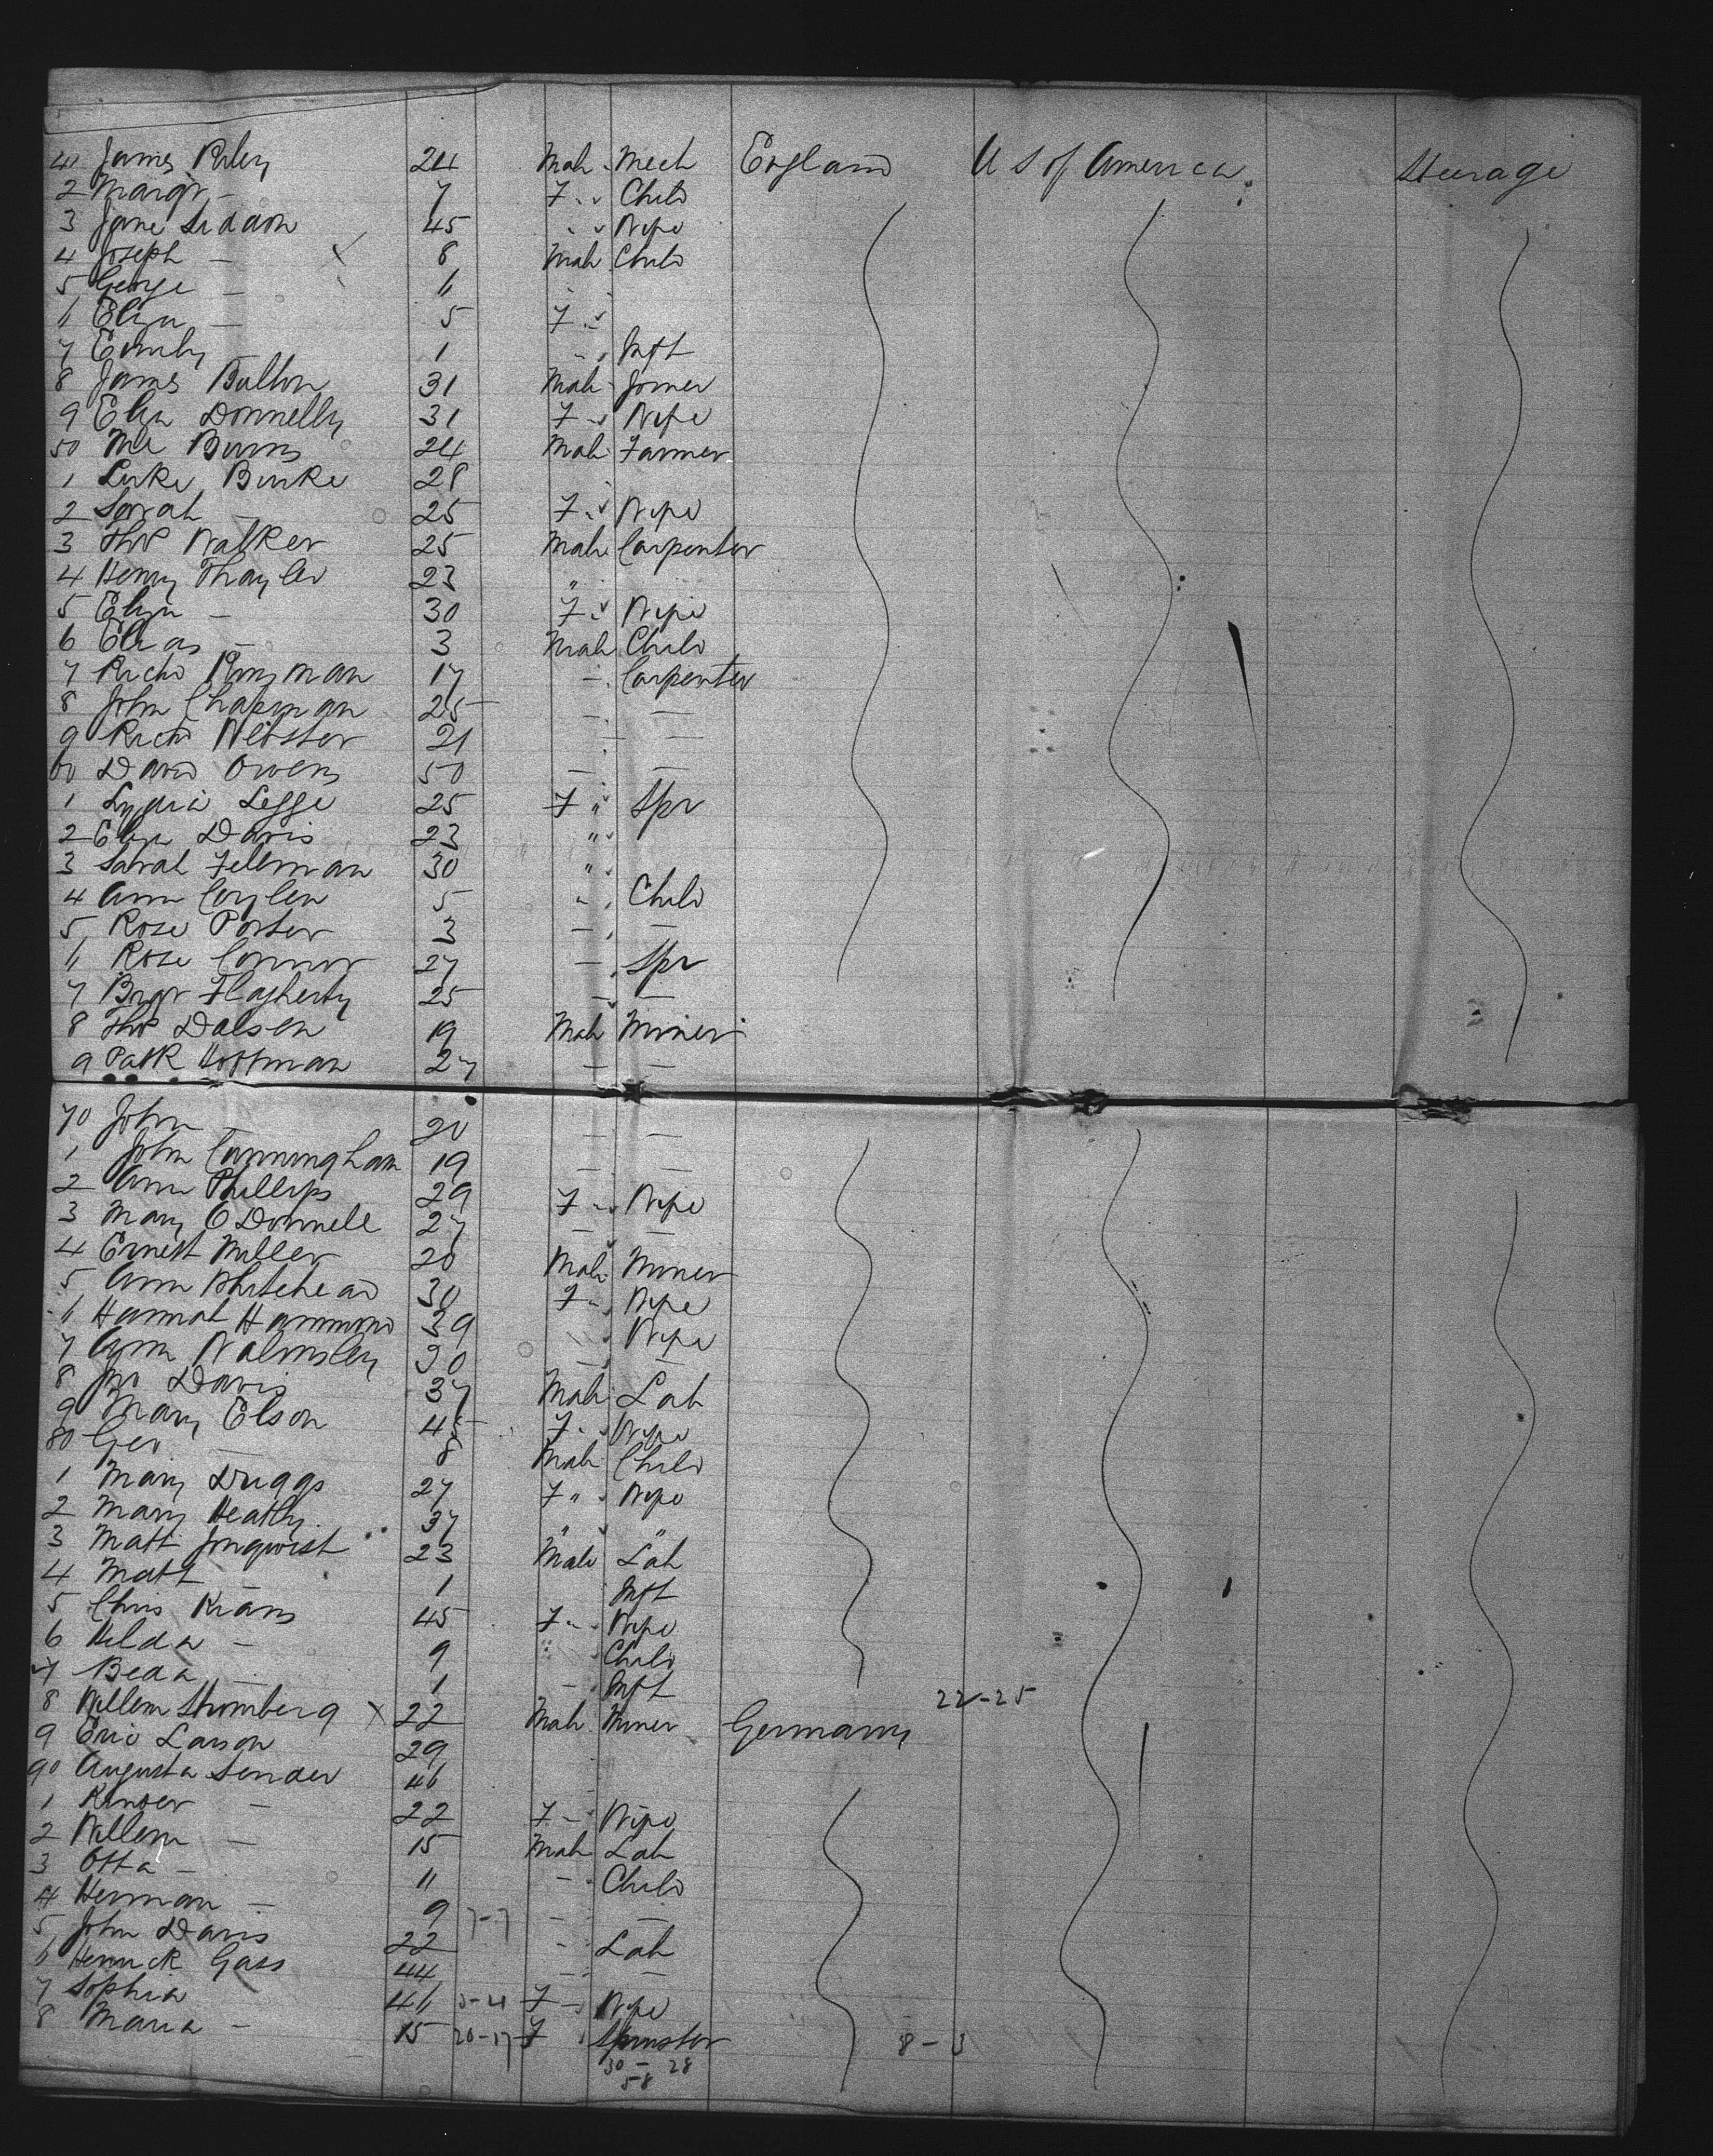 41 James Riley 24 Male Mech England U S of America Steerage
2 Margt — 7 F Child
3 Jane Siddon 45 " Wife
4 Joseph — 8 Male Child
5 George — 6
6 Eliza — 5 F
7 Emily 1 Inft
8 James Bolton 31 Male Joiner
9 Eliza Donnelly 31 F Wife
50 Burns 24 Male Farmer
1 Luke Burke 28
2 Sarah — 25 F Wife
3 Thos Walker 25 Male Carpenter
4 Henry Thayler 23 "
5 Eliza — 30 F Wife
6 Elias — 3 Male Child
7 Richd 17 — Carpenter
8 John Chapman 25 — —
9 Richd Webster 21 — —
60 David Owens 50 — —
1 Lydia Legge 25 F " Spr
2 Eliza Davis 23 "
3 Sarah Felleman 30 "
4 Ann 5 " Child
5 Rose Porter 3 — —
6 Rose Connor 27 — Spr
7 Brgt Flagherty 25 — —
8 Thos Dalsen 19 Male Miner
9 Patk Hoffman 27 — —
70 John — 20 — —
1 John Cunningham 19 — —
2 Ann Phillips 29 F Wife
3 Mary O Donnell 27 — —
4 Ernest Miller 20 Male Miner
5 Ann Whitehead 30 F Wife
6 Hannah Hammond 39 Wife
7 Ann Walmsley 30 — —
8 Jno Davis 37 Male Lab
9 Mary Elson 45 F Wife
80 Geo — 8 Male Child
1 Mary Driggs 27 F " Wife
2 Mary Heathy 37 " "
3 Matt Jonqwist 23 Male Lab
4 Matt — 1 Inft
5 Chris Krans 45 F Wife
6 Hilda — 9 " Child
7 Beda — 1 — Inft
22-25
8 Willem Stromberg X 22 Male Miner Germany
9 Eric Larson 29
90 Augusta Sender 46
1 — 22 F Wife
2 Willem — 15 Male Lab
3 Otta — 11 — Child
4 Herman — 9 7-7 — —
5 John Davis 22 — Lab
6 Henrick Gass 44 — —
7 Sophia 46 F Wife
8 Maria — 15 20-17 F Spinster 8-3
30 - 28
58